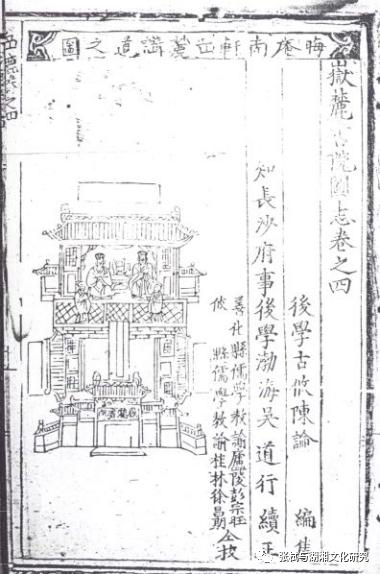 嶽麓書院圖志卷之四
後學古攸陳論 編集
知長沙府事後學渤海吳道行續正
善化縣儒學教諭廬陵彭宗旺
攸 縣儒學教諭桂林徐勗仝校
晦庵南軒岳麓講道之圖
之四
张栻与湖湘文化研究